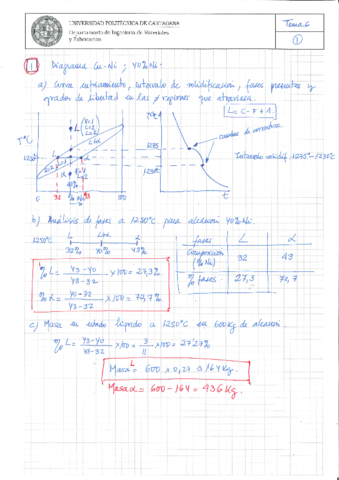 UNIVERSIDAD POLITÉCNICA DE CARTAGENA
Departamento de Ingeniería de Materiales
y Fabricación
Tema 6
1
1 Diagrama Cu-Ni ; 40% Ni.
a) Curva enfriamiento, intervalo de solidificación, fases presentes y
grados de libertad en las regiones que atraviesa.
L = C - F + 1.
TºC
1250
L
α
L+α
32
40%
43
% Ni
100
TºC
1275
1230
t
cambios de
Intervalo solidif. 1275º-1230º
b) Análisis de fases a 1250ºC para aleación 40% Ni.
1250ºC L L+α α
32% 40% 43%
fases L α
Composición (% Ni) 32 43
% fases. 27,3 72,7
% L = 43-40 / 43-32 x100 = 27,3%
% α = 40-32 / 43-32 x100 = 72,7%
c) Masa en estado líquido a 1250ºC en 600 kg de aleación.
% L = 43-40 / 43-32 x100 = 3 / 11 x100 = 27'27%
Masa L = 600 x 0,27 = 164 kg.
Masa α = 600 - 164 = 436 kg.